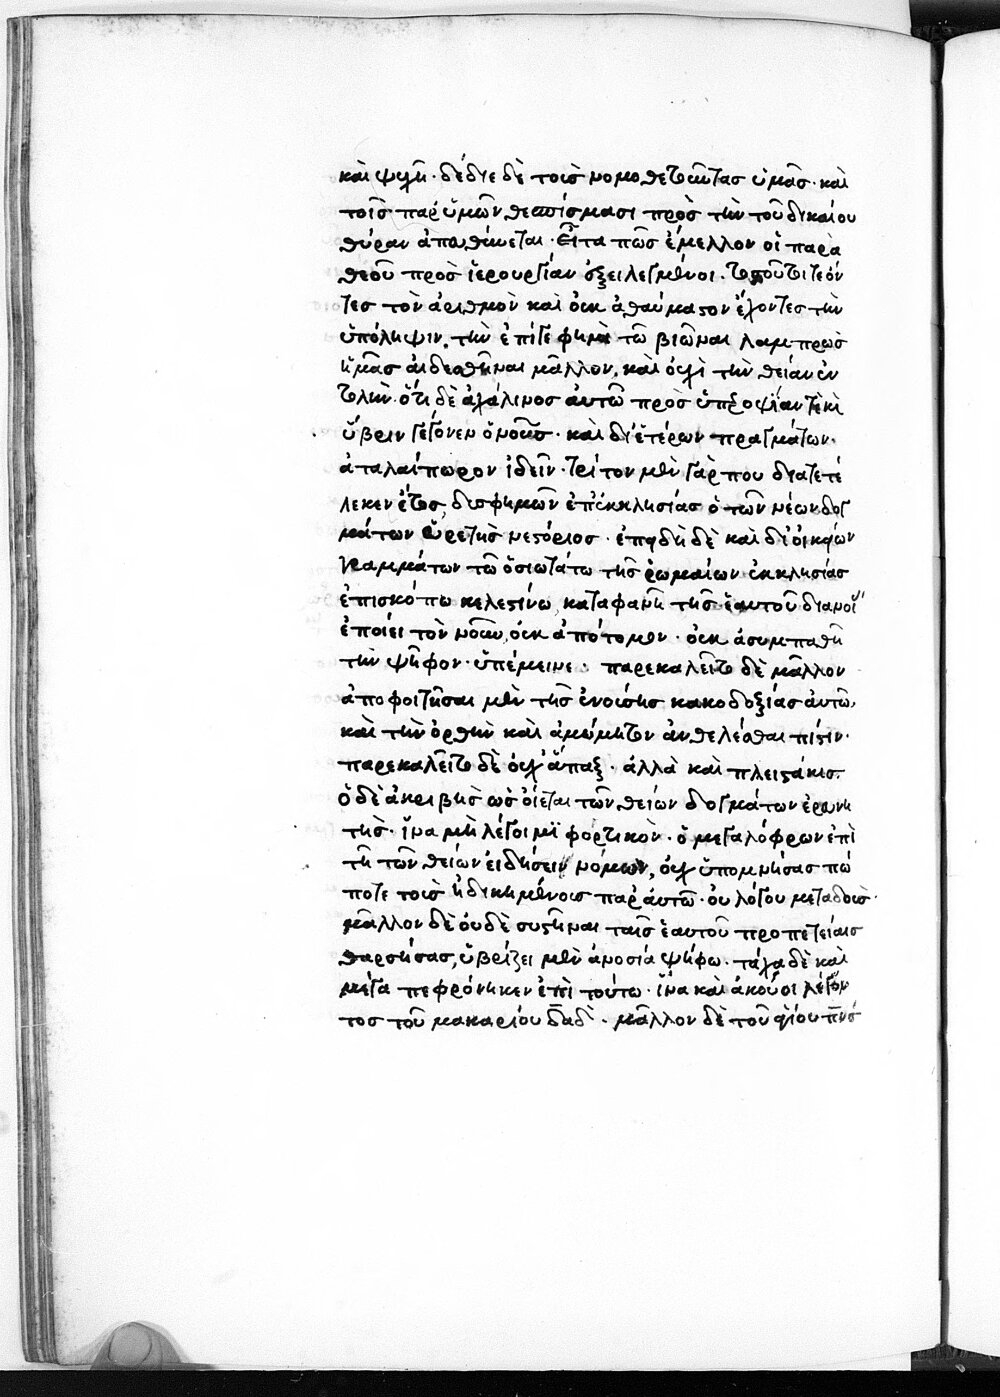 καὶ ψυχῆ· δέδιε δὲ τοὺς νομοθετοῦντας ὑμᾶς· καὶ
τοῖς παρ' ὑμῶν θεσπίσμασι πρὸς τὴν τοῦ δικαίου
θήραν ἀπευθύνεται· Εἶτα πῶς ἔμελλον οἱ παρὰ
θεοῦ πρὸς ἱερουργίαν ἐξειλεγμένοι· τοσοῦτοι τε ὄν
τες τὸν ἀριθμὸν καὶ οὐκ ἀθαύμαστον ἔχοντες τὴν
ὑπόληψιν, τὴν ἐπί γε φημὶ τῶ βιῶναι λαμπρῶς
ἡμᾶς αἰδεσθῆναι μᾶλλον, καὶ οὐχὶ τὴν θείαν ἐν
τολήν· ὅτι δὲ ἀχάλινος αὐτῶ πρὸς ὑπεροψίαν τὲ καὶ
ὕβριν γέγονεν ὁ νοῦς· καὶ δι' ἑτέρων πραγμάτων·
ἀταλαίπωρον ἰδεῖν· τρίτον μὲν γάρ που διατετέ
λεκεν ἔτος, δυσφημῶν ἐπ' ἐκκλησίας ὁ τῶν νέων δογ
μάτων εὑρετὴς νεστόριος· ἐπειδὴ δὲ καὶ δι' οἰκείων
γραμμάτων τῶ ὁσιωτάτω τῆς ῥωμαίων ἐκκλησίας
ἐπισκόπω κελεστίνω, καταφανῆ τῆς ἑαυτοῦ διανοί
ἐποίει τὸν νοῦν, οὐκ ἀπότομον· οὐκ ἀσυμπαθῆ
τὴν ψῆφον· ὑπέμεινε· παρεκαλεῖτο δὲ μᾶλλον
ἀποφοιτῆσαι μὲν τῆς ἐνούσης κακοδοξίας αὐτῶ,
καὶ τὴν ὀρθὴν καὶ ἀμώμητον ἀνθελέσθαι πίστιν·
παρεκαλεῖτο δὲ οὐχ' ἅπαξ· ἀλλὰ καὶ πλειστάκις·
ὁ δὲ ἀκριβὴς ὡς οἴεται τῶν θείων δογμάτων ἐρευνη
τής· ἵνα μὴ λέγοιμϊ φορτικὸν· ὁ μεγαλόφρων ἐπὶ
τῆ τῶν θείων εἰδήσειν νόμων, οὐχ ὑπομνήσας πώ
ποτε τοὺς ἠδικημένους παρ' αὐτῶ· οὐ λόγου μεταδοὺς·
μᾶλλον δὲ οὐδὲ συστῆναι ταῖς ἑαυτοῦ προπετείαις
θαρσήσας, ὑβρίζει μὲν ἀνοσία ψήφω· τάχα δὲ καὶ
μέγα πεφρόνηκεν ἐπὶ τούτω· ἵνα καὶ ἀκούοι λέγον
τος τοῦ μακαρίου δᾱδ̄· μᾶλλον δὲ τοῦ ἁγίου πνς